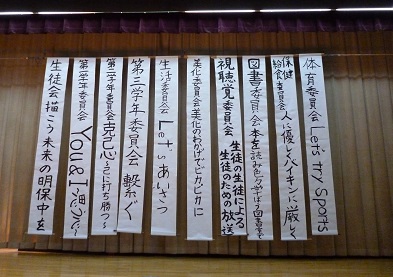 体育委員会 Let's try Sports
保健給食委員会 人に優しくバイキンに厳しく
図書委員会 本を読み色々学ぼう図書室で
視聴覚委員会 生徒の生徒による
生徒のための放送
美化委員会 美化のおかげでピカピカに
生活委員会 Let's あいさつ
第三学年委員会 繋ぐ
第二学年委員会 克己心~己に打ち勝つ~
第一学年委員会 You & I
生徒会 描こう未来の明保中を